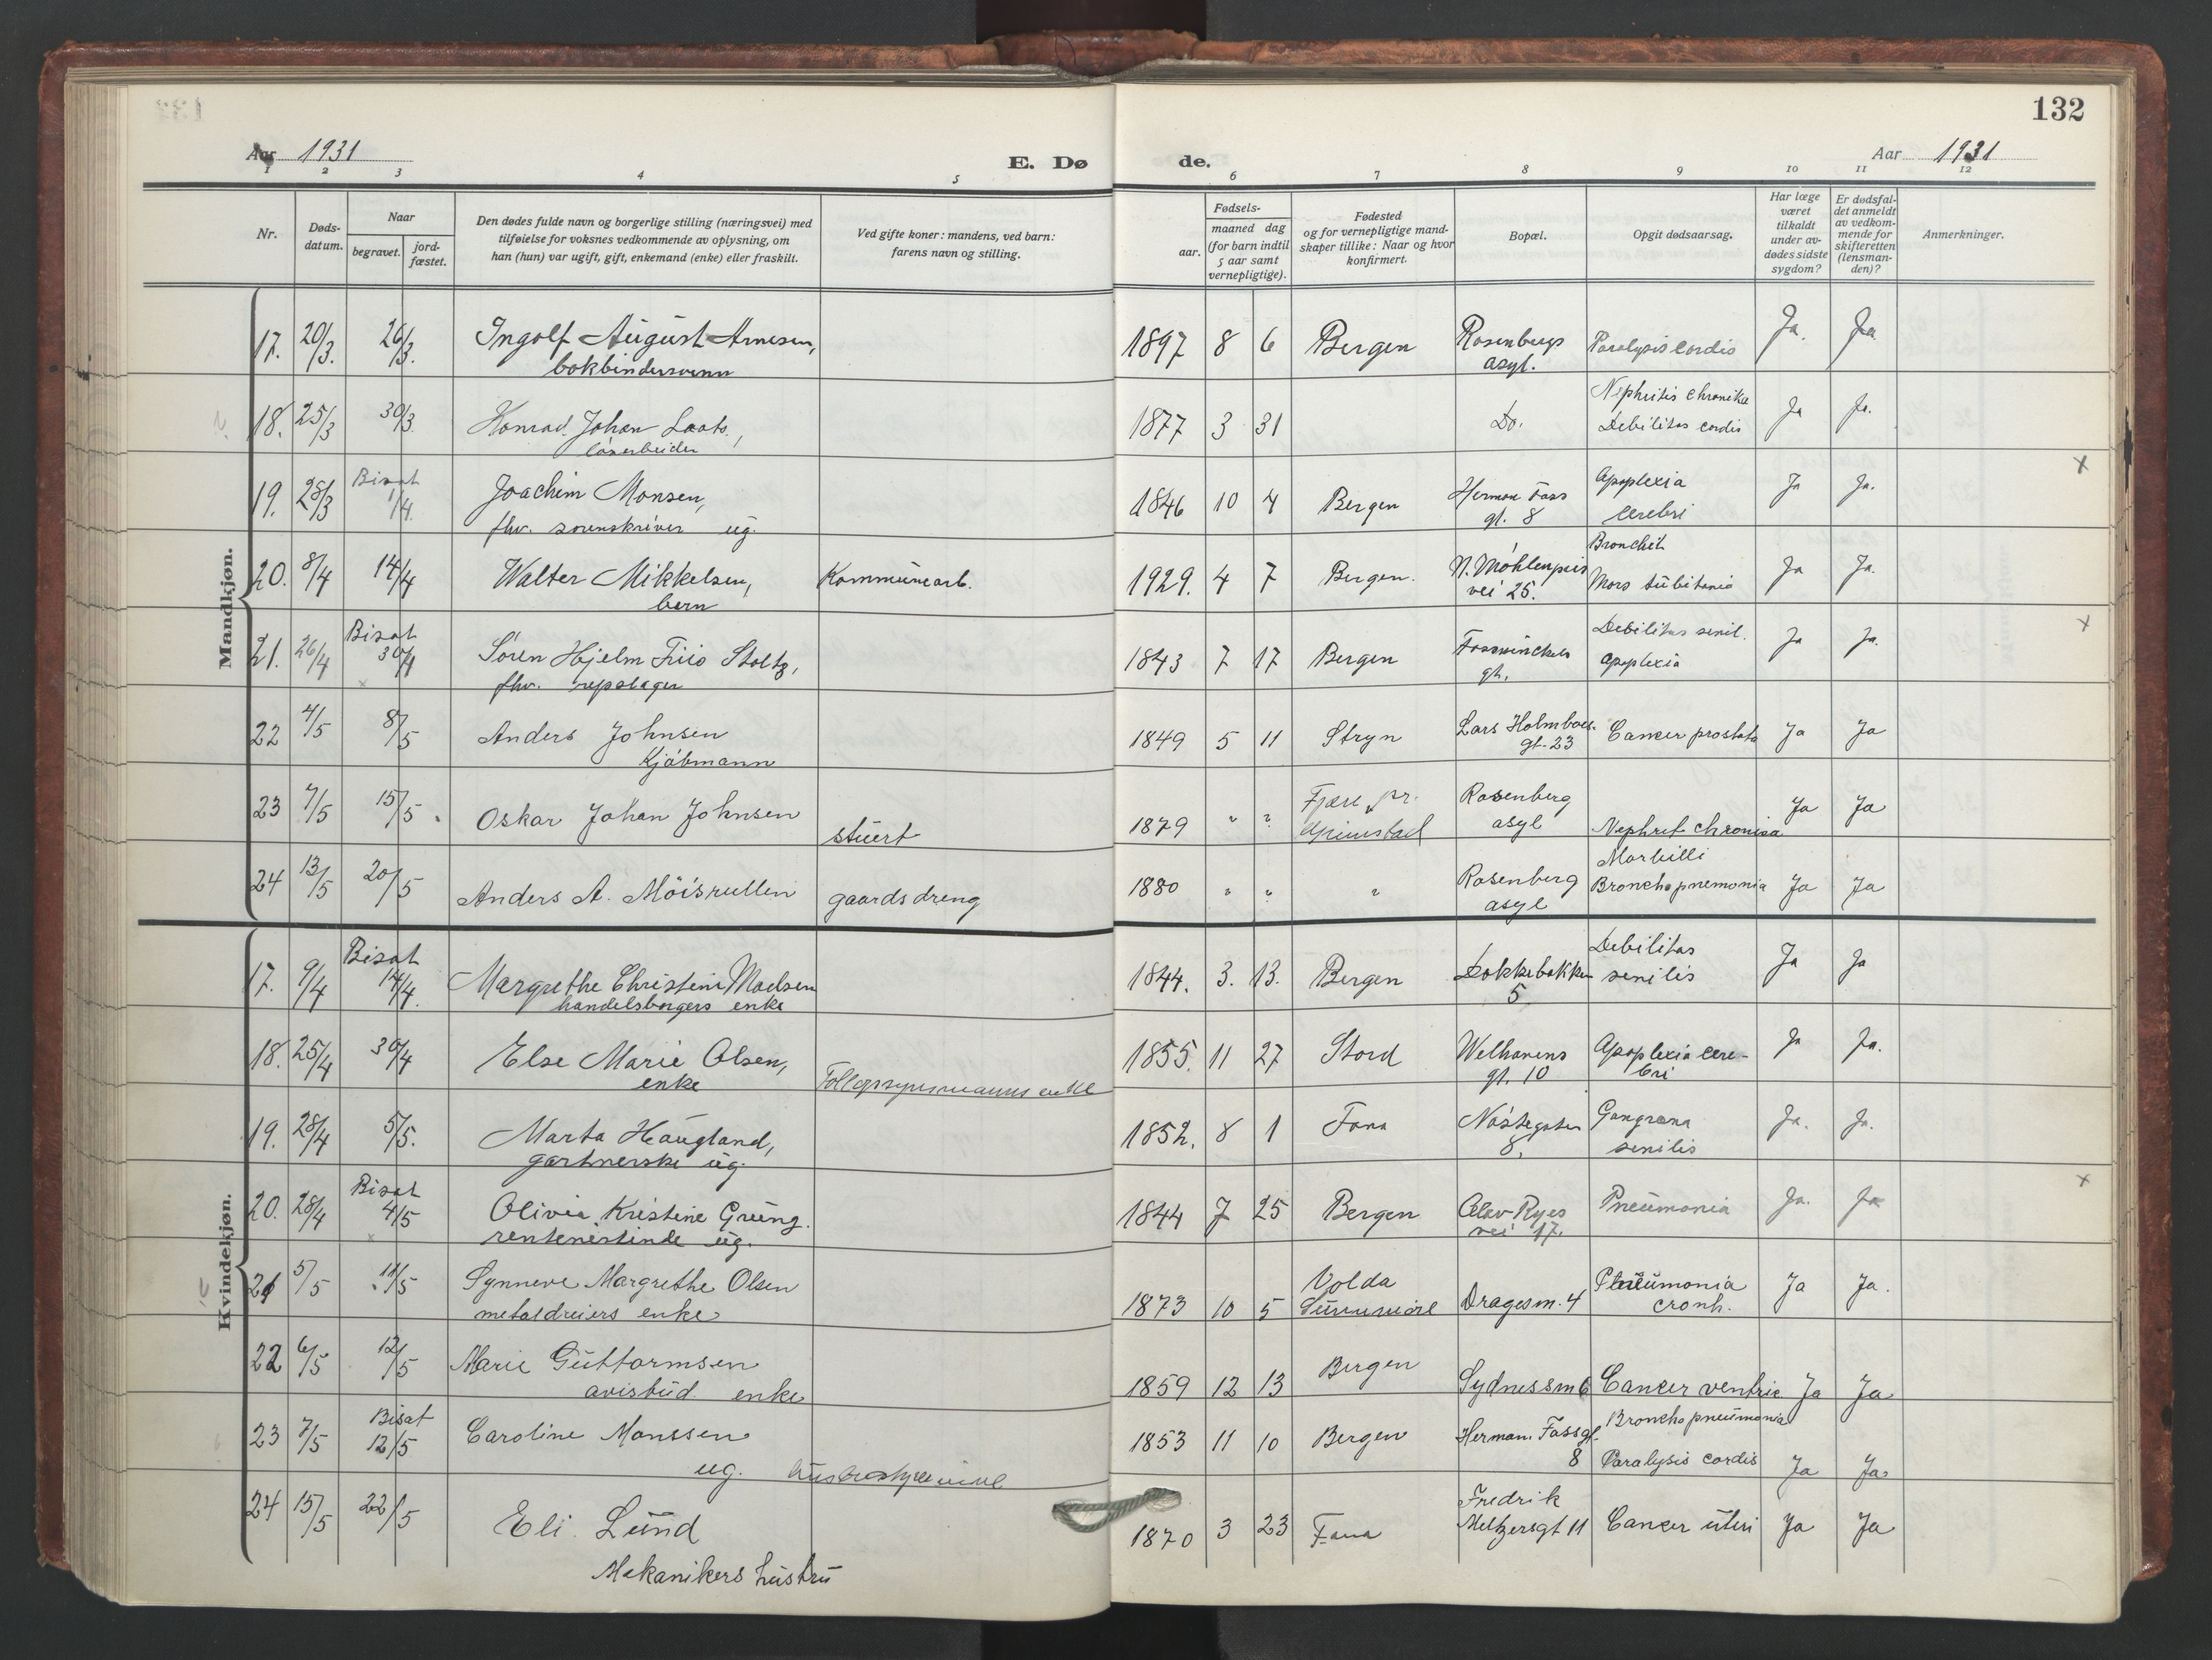 132
Aar 1931
E. Dø de.
Aar 1931
1 2 3 4 5 6 7 8 9 10 11 12
Nr.
Døds-datum.
Naar
begravet.
jord-fæstet.
Den dødes fulde navn og borgerlige stilling (næringsvei) med
tilføielse for voksnes vedkommende av oplysning, om
han (hun) var ugift, gift, enkemand (enke) eller fraskilt.
Ved gifte koner: mandens, ved barn:
farens navn og stilling.
Fødsels-
aar.
maaned dag
(for barn indtil
5 aar samt
vernepligtige).
Fødested
og for vernepligtige mand-
skaper tillike: Naar og hvor
konfirmert.
Bopæl.
Opgit dødsaarsag.
Har læge
været
tilkaldt
under av-
dødes sidste
sygdom?
Er dødsfal-
det anmeldt
av vedkom-
mende for
skifteretten
(lensman-
den)?
Anmerkninger.
Mandkjøn.
17. 20/3. 26/3. Ingolf August Arnesen, 1897 8 6 Bergen Rosenbergs Paralysis cordis Ja. Ja.
bokbindersvenn asyl.
18. 25/3 30/3 Konrad Johan 1877 3 31 Do. Nephritis chronika Ja Ja.
løsarbeider Debilitas cordis
19. 28/3 Bisat 1/4. Joachim Monsen, 1846 10 4 Bergen Herman Foss Apoplexia Ja Ja. x
fhv. sorenskriver ug. gt. 8 cerebri
20. 8/4 14/4 Walter Mikkelsen, Kommunearb. 1929. 4 7 Bergen. N. Møhlenpris Bronchit Ja Ja.
barn vei 25. Mors subitania
21. 26/4 Bisat 30/4 Søren Hjelm Friis Stoltz, 1843 7 17 Bergen Fosswinckels Debilitas senil. Ja Ja. x
fhv. repslager gt. apoplexia
22 4/5 8/5 Anders Johnsen 1849 5 11 Stryn Lars Holmboes Cancer prostata Ja Ja
Kjøbmann gt. 23
23 7/5 15/5 Oskar Johan Johnsen stuert 1879 " " Fjære pr. Rosenberg Nephrit chronica Ja Ja
Grimstad asyl
24 13/5 20/5 Anders A. gaardsdreng 1880 " " " Rosenberg Morbilli Ja Ja
asyl Bronchopnemonia
Kvindekjøn.
17. 9/4 Bisat 14/4. Margrethe Christine Madsen 1844. 3. 13. Bergen Dokkebakken Debilitas Ja Ja
handelsborgers enke 5 senilis
18. 25/4 30/4 Else Marie Olsen, 1855. 11 27 Stord Welhavens Apoplexia cere- Ja Ja.
enke enke gt. 10 bri
19. 28/4 5/5. Marta Haugland, 1852. 8 1 Fana Nøstegaten Gangræna Ja. Ja.
gartnerske ug. 8. senilis
20. 28/4 Bisat 4/5 Olivia Kristine Grung. 1844 7 25 Bergen Olav Ryes Pneumonia Ja. Ja x
rentenistinde ug. vei 17.
21 5/5 11/5 Synneve Margrethe Olsen 1873 10 5 Volda Dragesm. 4 Pneumonia Ja Ja.
metaldreiers enke Sunnmøre cronh.
22 6/5 12/5 Marie Guttormsen 1859 12 13 Bergen Sydnessm 6 Cancer ventric Ja Ja
avisbud enke
23 7/5 Bisat 12/5 Caroline Monssen 1853 11 10 Bergen Herman Fossgt. Bronchopneumonia Ja Ja
ug. husbestyrerinde 8 Paralysis cordis
24 15/5 22/5 Eli Lund 1870 3 23 Fana Fredrik Cancer uteri Ja Ja
Mekanikers hustru Meltzersgt 11